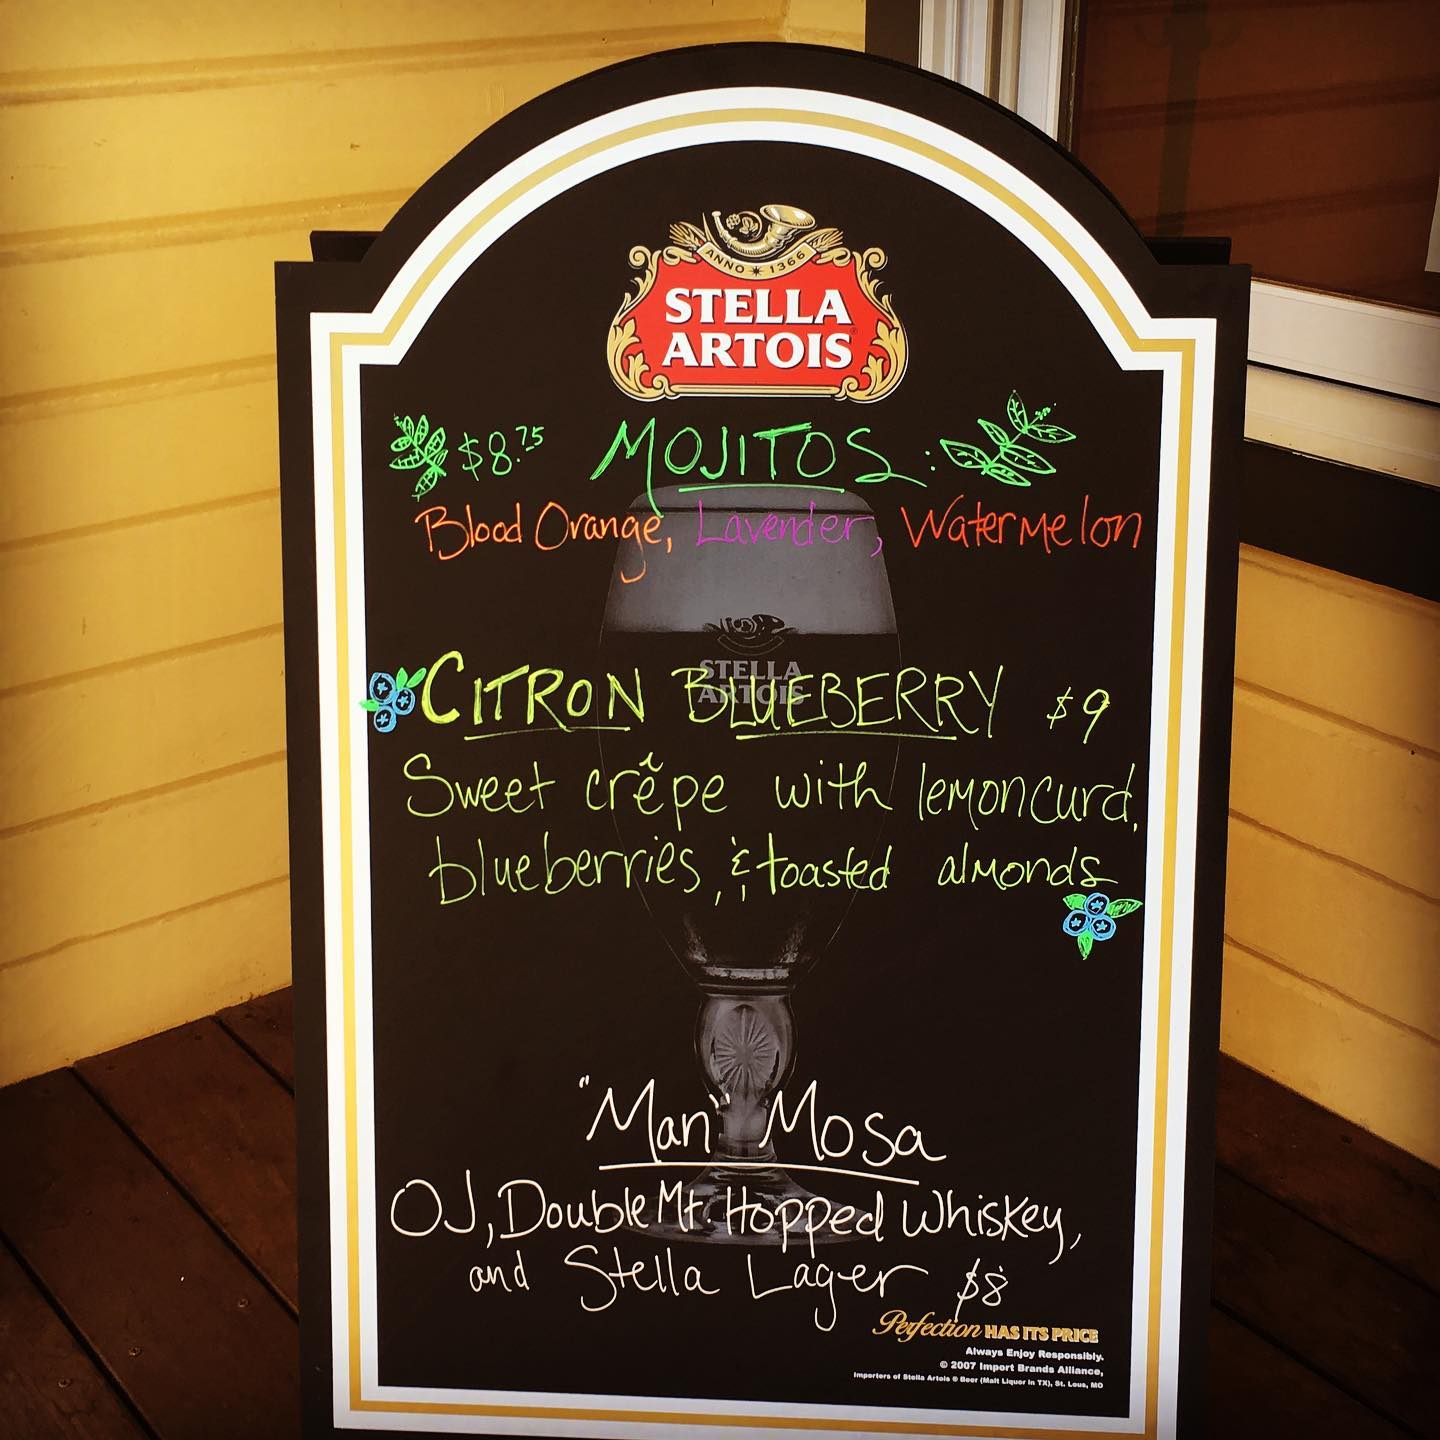 ANNO * 1366
STELLA
ARTOIS
$8.75 MOJITOS:
Blood Orange, Lavender, Watermelon
STELLA
ARTOIS
CITRON BLUEBERRY $9
Sweet crêpe with lemon curd,
blueberries, & toasted almonds
"Man" Mosa
OJ, Double Mt. Hopped Whiskey,
and Stella Lager $8
Perfection HAS ITS PRICE
Always Enjoy Responsibly.
© 2007 Import Brands Alliance,
Importers of Stella Artois ® Beer (Malt Liquor in TX), St. Lous, MO